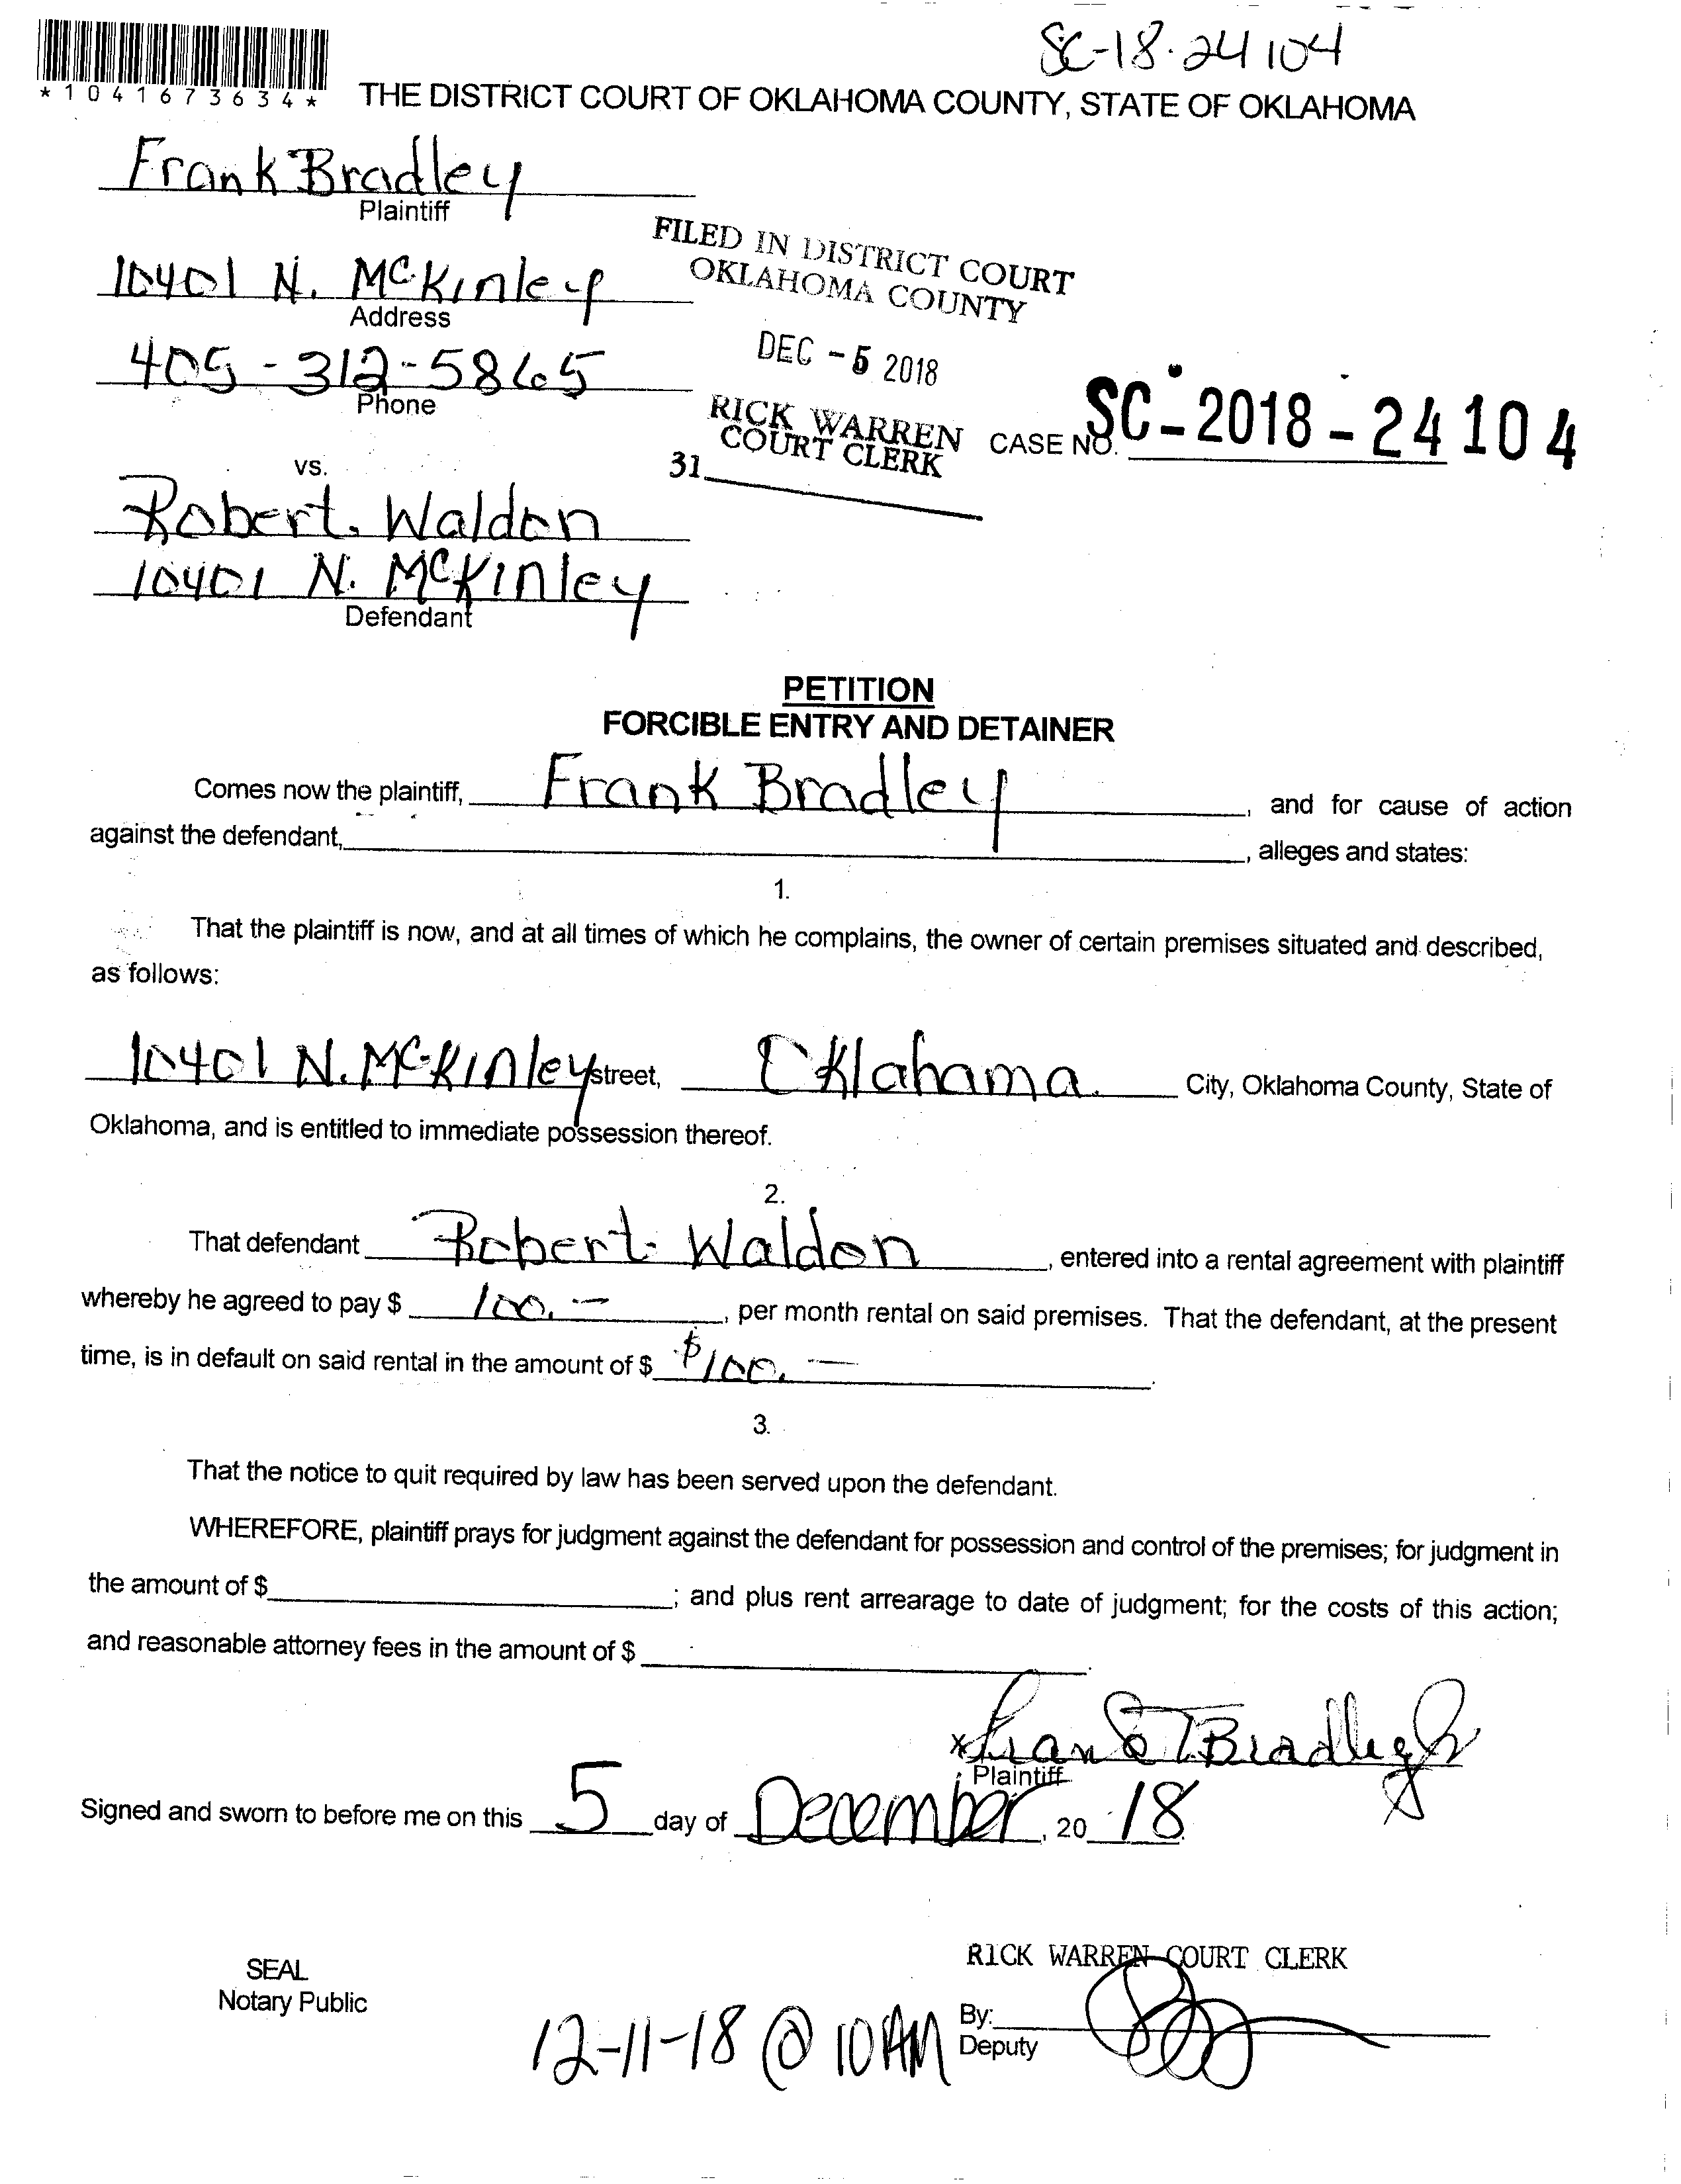 SC-18-24104
*1041673634*
THE DISTRICT COURT OF OKLAHOMA COUNTY, STATE OF OKLAHOMA
Frank Bradley
Plaintiff
10401 N. McKinley
Address
405-312-5865
Phone
FILED IN DISTRICT COURT
OKLAHOMA COUNTY
DEC -5 2018
RICK WARREN
COURT CLERK
31
CASE NO. SC-2018-24104
vs.
Robert Waldon
10401 N. McKinley
Defendant
PETITION
FORCIBLE ENTRY AND DETAINER
Comes now the plaintiff, Frank Bradley, and for cause of action
against the defendant, , alleges and states:
1.
That the plaintiff is now, and at all times of which he complains, the owner of certain premises situated and described,
as follows:
10401 N. McKinley street, Oklahama City, Oklahoma County, State of
Oklahoma, and is entitled to immediate possession thereof.
2.
That defendant Robert Waldon, entered into a rental agreement with plaintiff
whereby he agreed to pay $ 100.—, per month rental on said premises. That the defendant, at the present
time, is in default on said rental in the amount of $ $100.—.
3.
That the notice to quit required by law has been served upon the defendant.
WHEREFORE, plaintiff prays for judgment against the defendant for possession and control of the premises; for judgment in
the amount of $ ; and plus rent arrearage to date of judgment; for the costs of this action;
and reasonable attorney fees in the amount of $ .
x Frank T Bradley Jr
Plaintiff
Signed and sworn to before me on this 5 day of December, 20 18.
SEAL
Notary Public
RICK WARREN COURT CLERK
By:
Deputy
12-11-18 @ 10AM